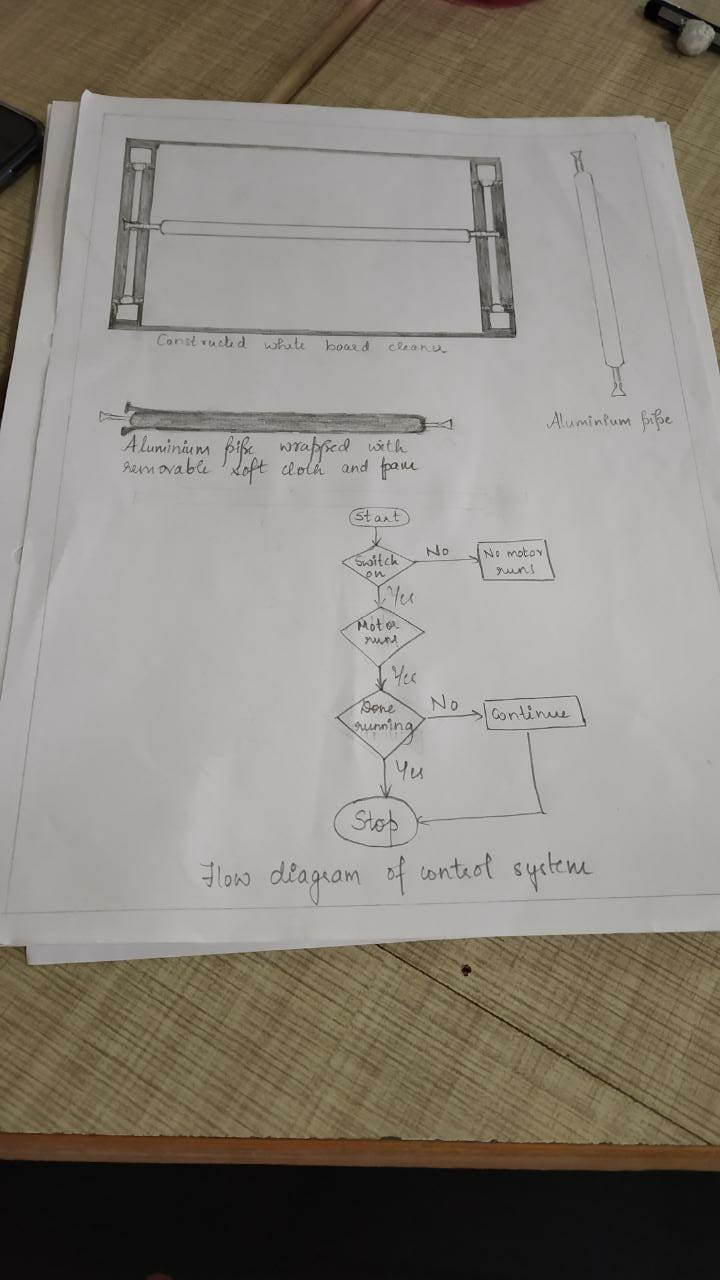 Constructed white board cleaner
Aluminium pipe
Aluminium pipe wrapped with
removable soft cloth and foam
Start
Switch
on
No
No motor
runs
Yes
Motor
runs
Yes
Done
running
No
Continue
Yes
Stop
Flow diagram of control system